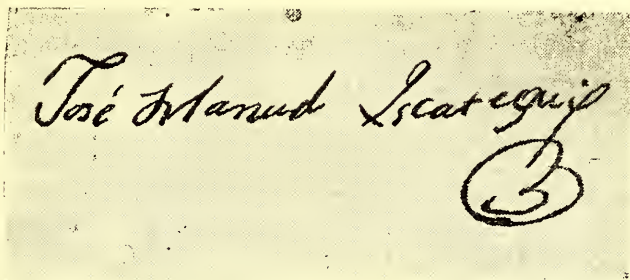 José Manuel Yscategui